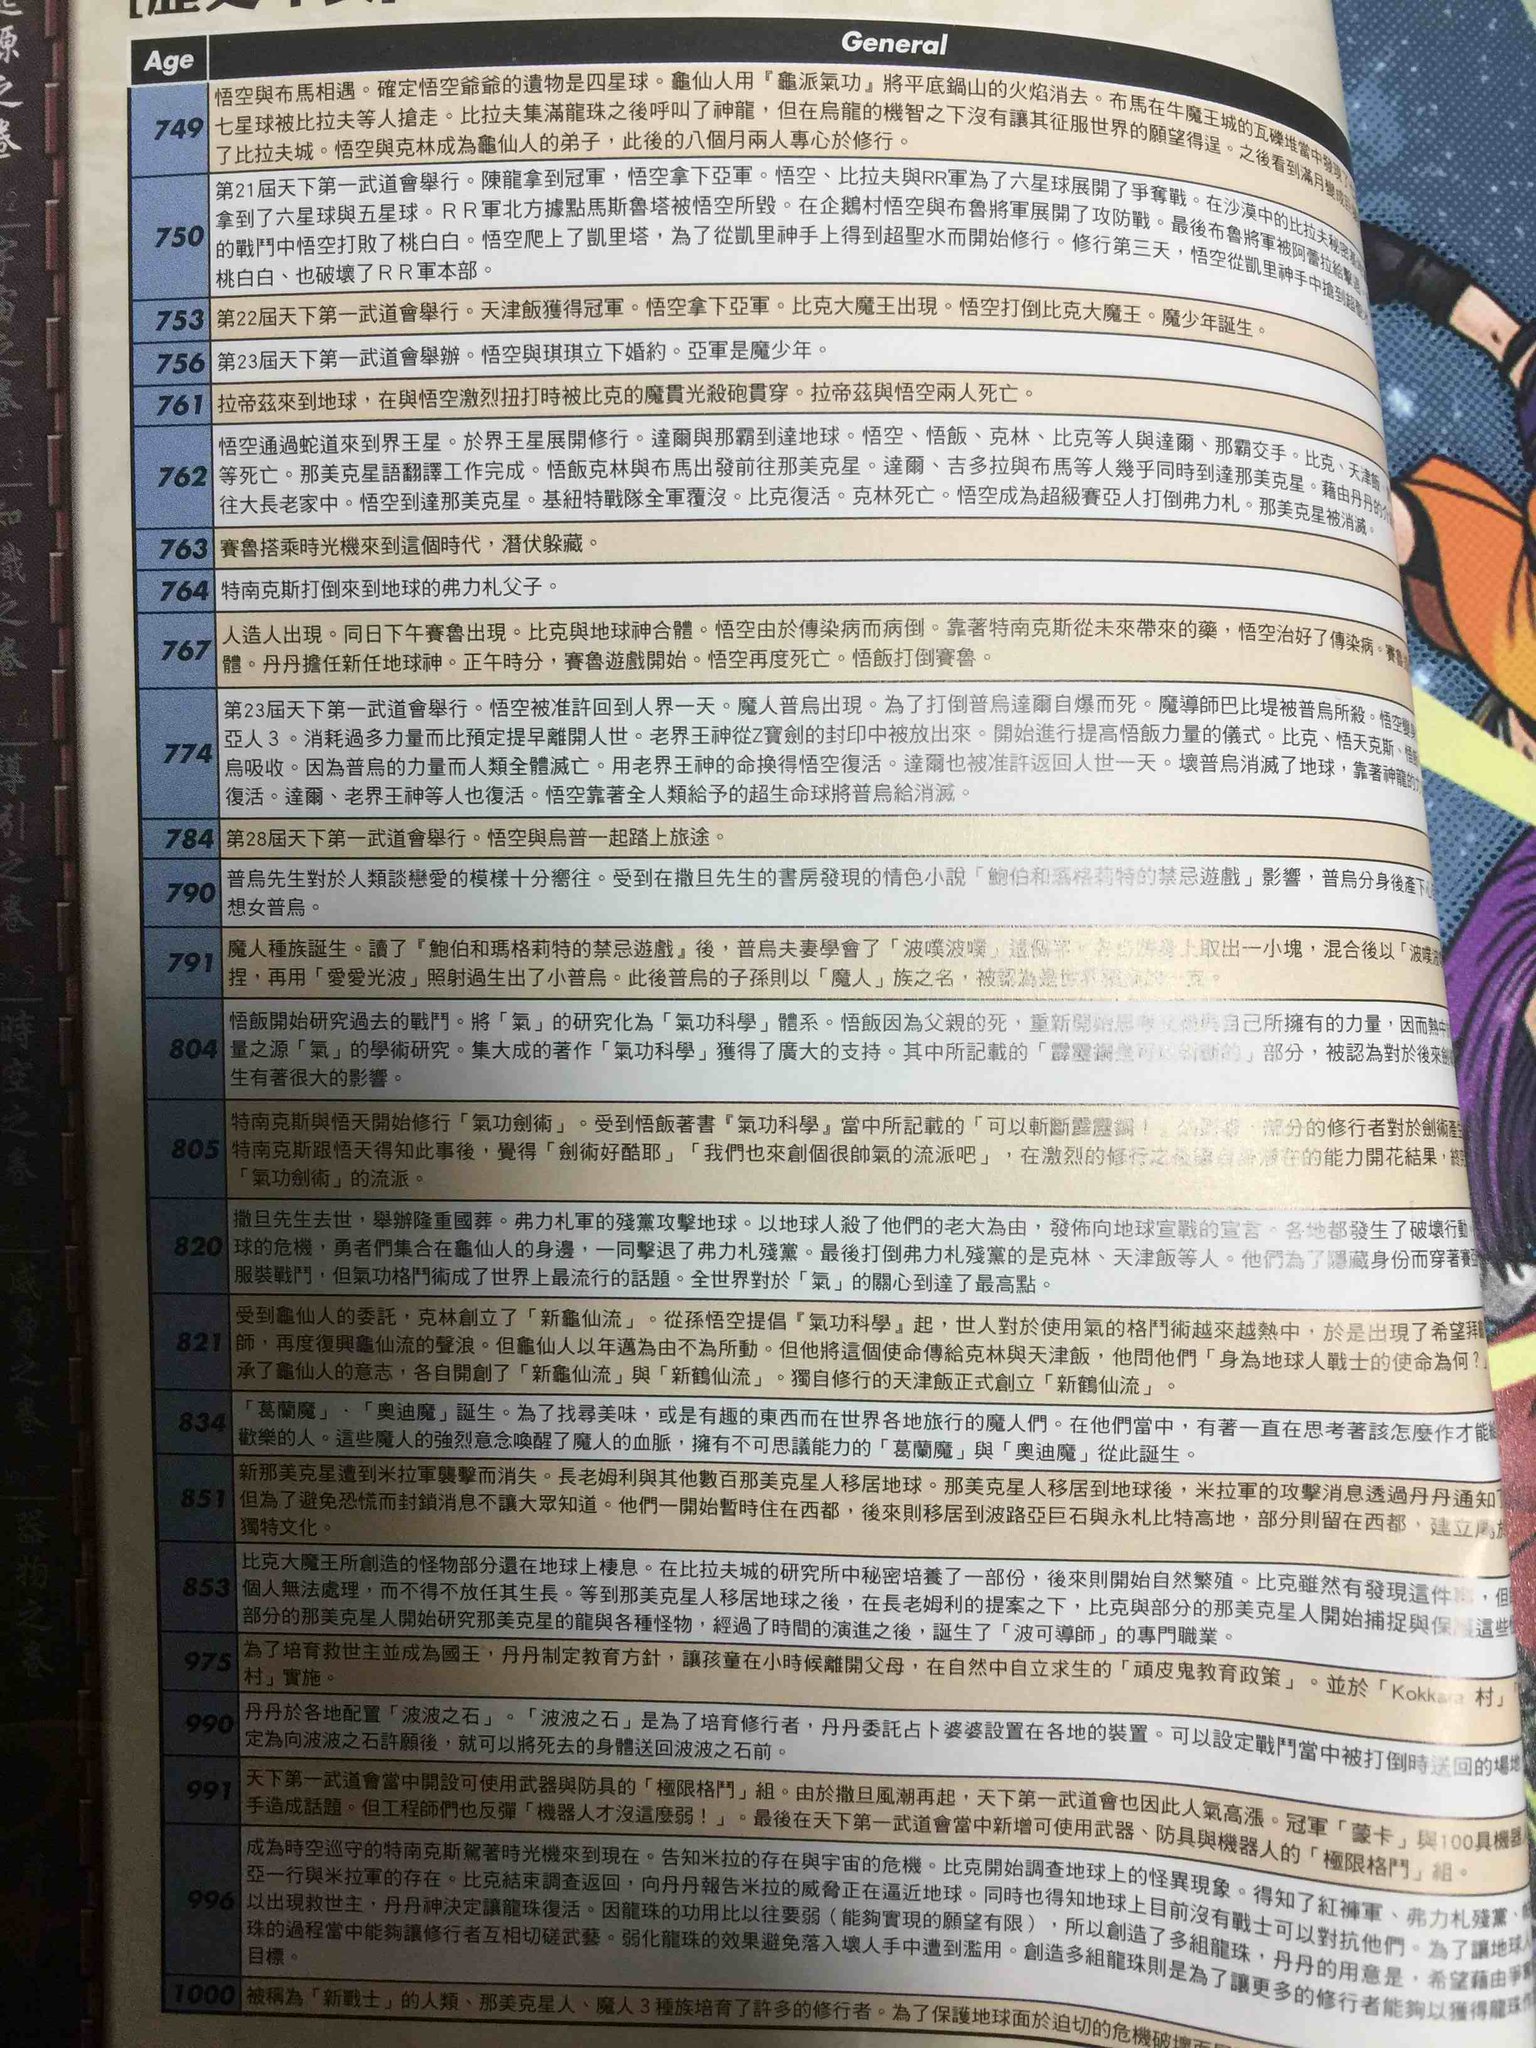 Age
General
749
悟空與布馬相遇。確定悟空爺爺的遺物是四星球。龜仙人用『龜派氣功』將平底鍋山的火焰消去。布馬在牛魔王城的瓦礫堆當中發現了
七星球被比拉夫等人搶走。比拉夫集滿龍珠之後呼叫了神龍，但在烏龍的機智之下沒有讓其征服世界的願望得逞。之後看到滿月變成
了比拉夫城。悟空與克林成為龜仙人的弟子，此後的八個月兩人專心於修行。
750
第21屆天下第一武道會舉行。陳龍拿到冠軍，悟空拿下亞軍。悟空、比拉夫與RR軍為了六星球展開了爭奪戰。在沙漠中的比拉夫秘密
拿到了六星球與五星球。RR軍北方據點馬斯魯塔被悟空所毀。在企鵝村悟空與布魯將軍展開了攻防戰。最後布魯將軍被阿蕾拉給擊
的戰鬥中悟空打敗了桃白白。悟空爬上了凱里塔，為了從凱里神手上得到超聖水而開始修行。修行第三天，悟空從凱里神手中搶到
桃白白、也破壞了RR軍本部。
753
第22屆天下第一武道會舉行。天津飯獲得冠軍。悟空拿下亞軍。比克大魔王出現。悟空打倒比克大魔王。魔少年誕生。
756
第23屆天下第一武道會舉辦。悟空與琪琪立下婚約。亞軍是魔少年。
761
拉帝茲來到地球，在與悟空激烈扭打時被比克的魔貫光殺砲貫穿。拉帝茲與悟空兩人死亡。
762
悟空通過蛇道來到界王星。於界王星展開修行。達爾與那霸到達地球。悟空、悟飯、克林、比克等人與達爾、那霸交手。比克、天津飯
等死亡。那美克星語翻譯工作完成。悟飯克林與布馬出發前往那美克星。達爾、吉多拉與布馬等人幾乎同時到達那美克星。藉由丹丹的介
往大長老家中。悟空到達那美克星。基紐特戰隊全軍覆沒。比克復活。克林死亡。悟空成為超級賽亞人打倒弗力札。那美克星被消滅。
763
賽魯搭乘時光機來到這個時代，潛伏躲藏。
764
特南克斯打倒來到地球的弗力札父子。
767
人造人出現。同日下午賽魯出現。比克與地球神合體。悟空由於傳染病而病倒。靠著特南克斯從未來帶來的藥，悟空治好了傳染病。賽魯
體。丹丹擔任新任地球神。正午時分，賽魯遊戲開始。悟空再度死亡。悟飯打倒賽魯。
774
第23屆天下第一武道會舉行。悟空被准許回到人界一天。魔人普烏出現。為了打倒普烏達爾自爆而死。魔導師巴比堤被普烏所殺。悟空變
亞人3。消耗過多力量而比預定提早離開人世。老界王神從Z寶劍的封印中被放出來。開始進行提高悟飯力量的儀式。比克、悟天克斯、悟
烏吸收。因為普烏的力量而人類全體滅亡。用老界王神的命換得悟空復活。達爾也被准許返回人世一天。壞普烏消滅了地球，靠著神龍的力
復活。達爾、老界王神等人也復活。悟空靠著全人類給予的超生命球將普烏給消滅。
784
第28屆天下第一武道會舉行。悟空與烏普一起踏上旅途。
790
普烏先生對於人類談戀愛的模樣十分嚮往。受到在撒旦先生的書房發現的情色小說「鮑伯和瑪格莉特的禁忌遊戲」影響，普烏分身後產下
想女普烏。
791
魔人種族誕生。讀了『鮑伯和瑪格莉特的禁忌遊戲』後，普烏夫妻學會了「波噗波噗」這個字。各自將身上取出一小塊，混合後以「波噗波
捏，再用「愛愛光波」照射過生出了小普烏。此後普烏的子孫則以「魔人」族之名，被認為是世界
804
悟飯開始研究過去的戰鬥。將「氣」的研究化為「氣功科學」體系。悟飯因為父親的死，重新開始思考父親與自己所擁有的力量，因而熱中
量之源「氣」的學術研究。集大成的著作「氣功科學」獲得了廣大的支持。其中所記載的「霹靂鋼是可以斬斷的」部分，被認為對於後來
生有著很大的影響。
805
特南克斯與悟天開始修行「氣功劍術」。受到悟飯著書『氣功科學』當中所記載的「可以斬斷霹靂鋼！」的影響，部分的修行者對於劍術產
特南克斯跟悟天得知此事後，覺得「劍術好酷耶」「我們也來創個很帥氣的流派吧」，在激烈的修行之後 潛在的能力開花結果，終
「氣功劍術」的流派。
820
撒旦先生去世，舉辦隆重國葬。弗力札軍的殘黨攻擊地球。以地球人殺了他們的老大為由，發佈向地球宣戰的宣言。各地都發生了破壞行動
球的危機，勇者們集合在龜仙人的身邊，一同擊退了弗力札殘黨。最後打倒弗力札殘黨的是克林、天津飯等人。他們為了隱藏身份而穿著賽
服裝戰鬥，但氣功格鬥術成了世界上最流行的話題。全世界對於「氣」的關心到達了最高點。
821
受到龜仙人的委託，克林創立了「新龜仙流」。從孫悟空提倡『氣功科學』起，世人對於使用氣的格鬥術越來越熱中，於是出現了希望拜
師，再度復興龜仙流的聲浪。但龜仙人以年邁為由不為所動。但他將這個使命傳給克林與天津飯，他問他們「身為地球人戰士的使命為何？」
承了龜仙人的意志，各自開創了「新龜仙流」與「新鶴仙流」。獨自修行的天津飯正式創立「新鶴仙流」。
834
「葛蘭魔」、「奧迪魔」誕生。為了找尋美味，或是有趣的東西而在世界各地旅行的魔人們。在他們當中，有著一直在思考著該怎麼作才能
歡樂的人。這些魔人的強烈意念喚醒了魔人的血脈，擁有不可思議能力的「葛蘭魔」與「奧迪魔」從此誕生。
851
新那美克星遭到米拉軍襲擊而消失。長老姆利與其他數百那美克星人移居地球。那美克星人移居到地球後，米拉軍的攻擊消息透過丹丹通知了
但為了避免恐慌而封鎖消息不讓大眾知道。他們一開始暫時住在西都，後來則移居到波路亞巨石與永札比特高地，部分則留在西都，建立屬於
獨特文化。
853
比克大魔王所創造的怪物部分還在地球上棲息。在比拉夫城的研究所中秘密培養了一部份，後來則開始自然繁殖。比克雖然有發現這件事，但
個人無法處理，而不得不放任其生長。等到那美克星人移居地球之後，在長老姆利的提案之下，比克與部分的那美克星人開始捕捉與保護這些
部分的那美克星人開始研究那美克星的龍與各種怪物，經過了時間的演進之後，誕生了「波可導師」的專門職業。
975
為了培育救世主並成為國王，丹丹制定教育方針，讓孩童在小時候離開父母，在自然中自立求生的「頑皮鬼教育政策」。並於「Kokkara 村」
村」實施。
990
丹丹於各地配置「波波之石」。「波波之石」是為了培育修行者，丹丹委託占卜婆婆設置在各地的裝置。可以設定戰鬥當中被打倒時送回的場地
定為向波波之石許願後，就可以將死去的身體送回波波之石前。
991
天下第一武道會當中開設可使用武器與防具的「極限格鬥」組。由於撒旦風潮再起，天下第一武道會也因此人氣高漲。冠軍「蒙卡」與100具機器
手造成話題。但工程師們也反彈「機器人才沒這麼弱！」。最後在天下第一武道會當中新增可使用武器、防具與機器人的「極限格鬥」組。
996
成為時空巡守的特南克斯駕著時光機來到現在。告知米拉的存在與宇宙的危機。比克開始調查地球上的怪異現象。得知了紅褲軍、弗力札殘黨、
亞一行與米拉軍的存在。比克結束調查返回，向丹丹報告米拉的威脅正在逼近地球。同時也得知地球上目前沒有戰士可以對抗他們。為了讓地球
以出現救世主，丹丹神決定讓龍珠復活。因龍珠的功用比以往要弱（能夠實現的願望有限），所以創造了多組龍珠，丹丹的用意是，希望藉由爭奪
珠的過程當中能夠讓修行者互相切磋武藝。弱化龍珠的效果避免落入壞人手中遭到濫用。創造多組龍珠則是為了讓更多的修行者能夠以獲得龍珠作
目標。
1000
被稱為「新戰士」的人類、那美克星人、魔人3種族培育了許多的修行者。為了保護地球面於迫切的危機破壞